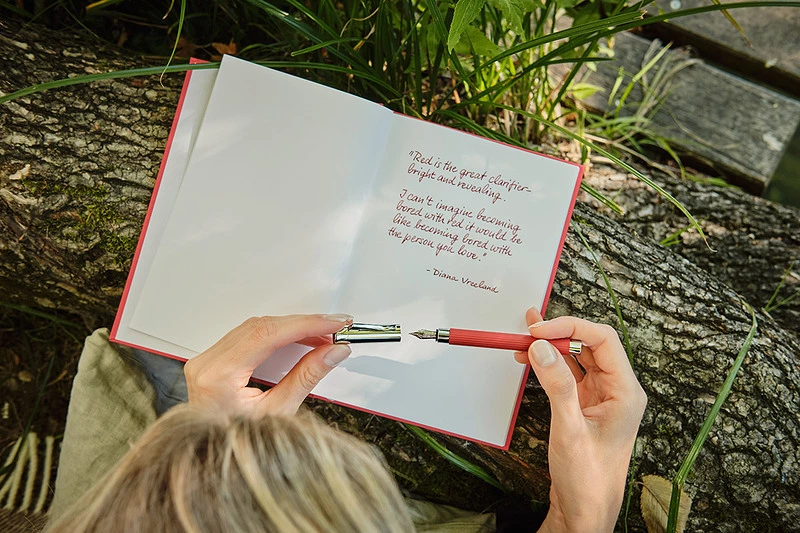 "Red is the great clarifier-
bright and revealing.
I can't imagine becoming
bored with red it would be
like becoming bored with
the person you love."
- Diana Vreeland